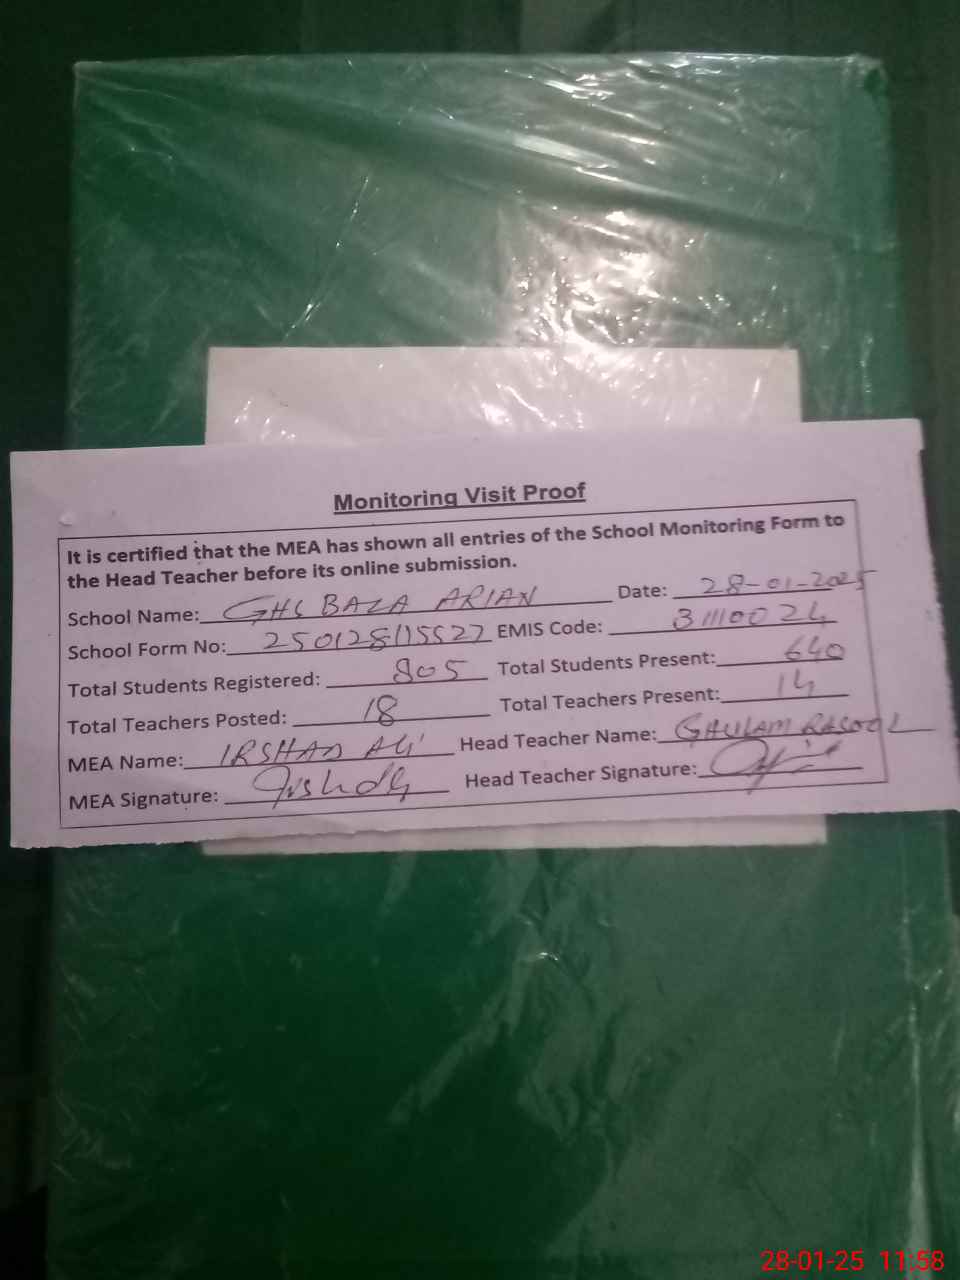 Monitoring Visit Proof
It is certified that the MEA has shown all entries of the School Monitoring Form to
the Head Teacher before its online submission.
School Name: GHS BAZA ARIAN Date: 28-01-2025
School Form No: 250128115527 EMIS Code: 31110024
Total Students Registered: 805 Total Students Present: 640
Total Teachers Posted: 18 Total Teachers Present: 14
MEA Name: IRSHAD ALI Head Teacher Name: GHULAM RASOOL
MEA Signature: Head Teacher Signature:
28-01-25 11:58